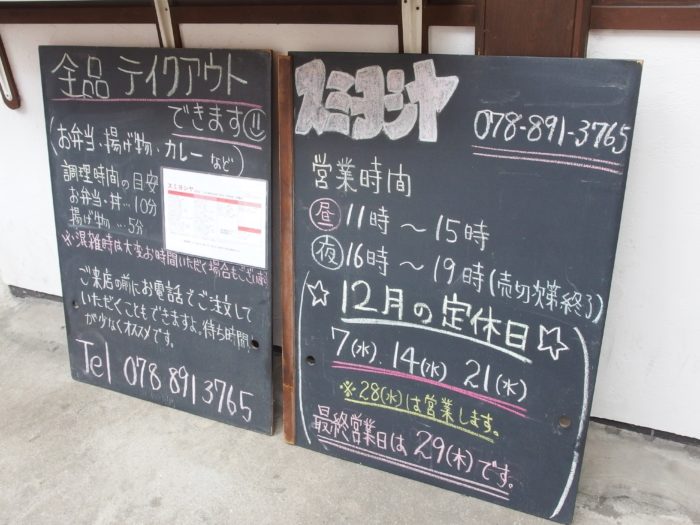 全品 テイクアウト
できます!!
(お弁当・揚げ物・カレー など)
調理時間の目安
お弁当・丼…10分
揚げ物…5分
※混雑時は大変お時間いただく場合もございます
ご来店の前にお電話でご注文して
いただくこともできますよ。待ち時間
が少なくオススメです。
Tel 078 891 3765
スミヨシヤ
078-891-3765
営業時間
昼 11時 〜 15時
夜 16時 〜 19時(売切次第終了)
☆12月の定休日☆
7(水). 14(水) 21(水)
※28(水)は営業します。
最終営業日は 29(木)です。